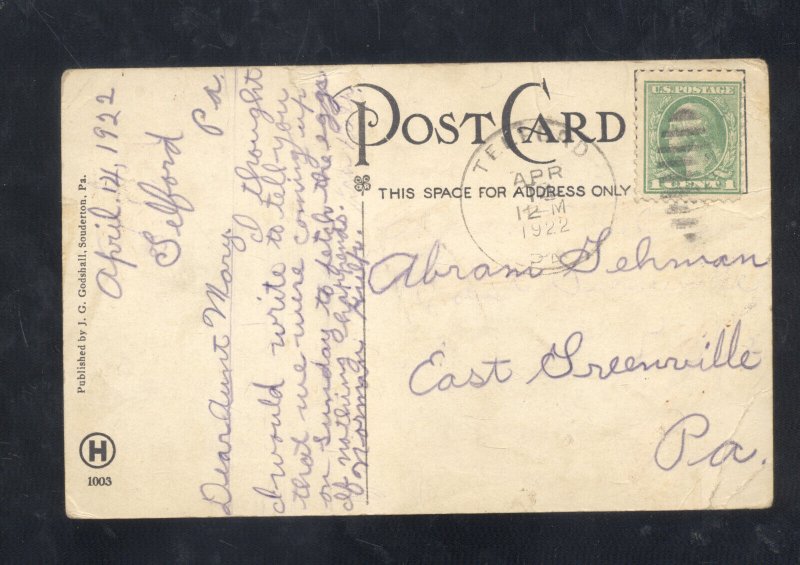 April. 14, 1922
Telford Pa.
Dear Aunt Mary
I thought
I would write to tell you
that we were coming up
on Sunday to fetch the eggs
If nothing happends.
Norman
POST CARD
THIS SPACE FOR ADDRESS ONLY
TELFORD
APR
12 M
1922
PA.
U.S. POSTAGE
1 CENT 1
Abram Gehman
East Greenville
Pa.
Published by J. G. Godshall, Souderton, Pa.
H
1003